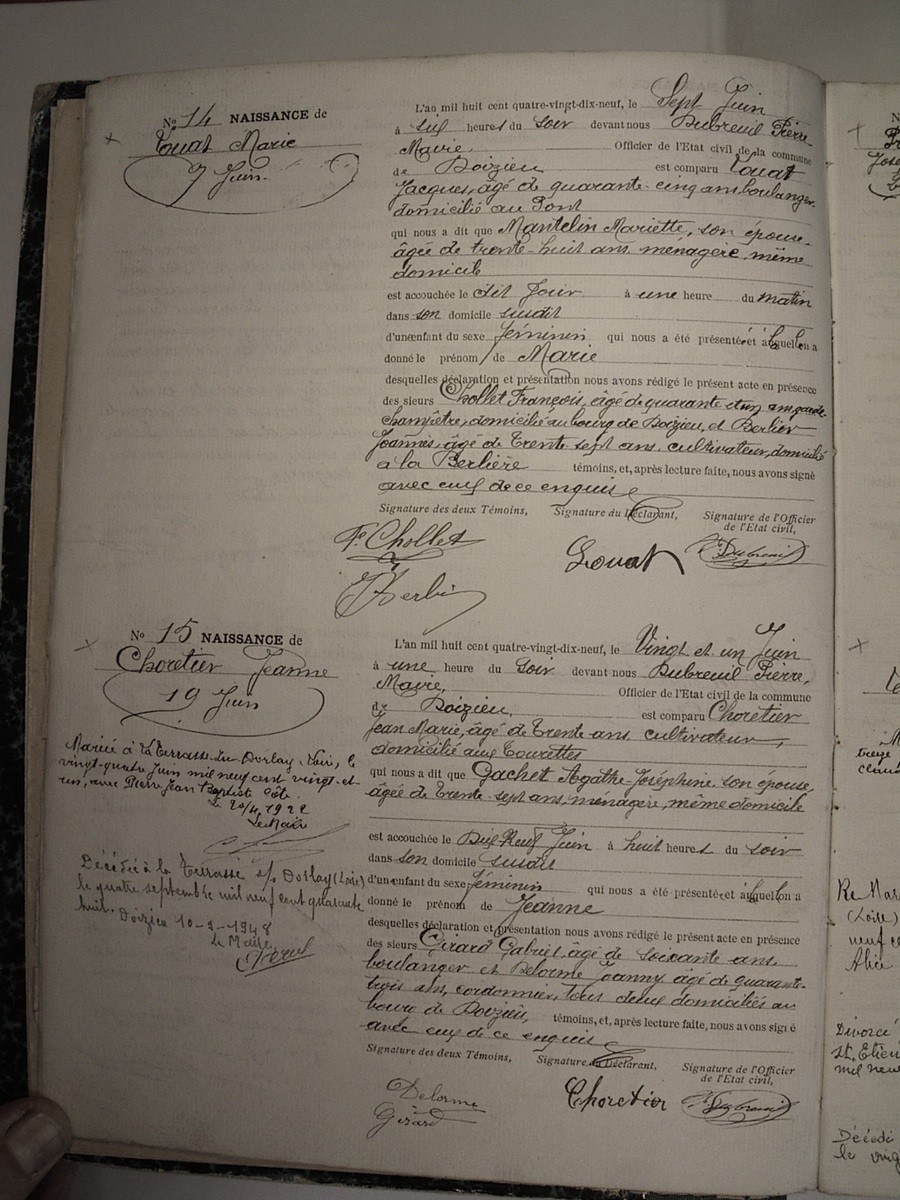 No 14 NAISSANCE de
Louat Marie
7 Juin
L'an mil huit cent quatre-vingt-dix-neuf, le Sept Juin
à six heures du soir devant nous Dubreuil Pierre
Maire, Officier de l'Etat civil de la commune
de Doizieu est comparu Louat
Jacques, âgé de quarante-cinq ans boulanger
domicilié au Pont
qui nous a dit que Mantelin Mariette, son épouse,
âgée de trente-huit ans, ménagère, même
domicile
est accouchée le dit jour à une heure du matin
dans son domicile susdit
d'un enfant du sexe féminin qui nous a été présenté et auquel on a
donné le prénom de Marie
desquelles déclaration et présentation nous avons rédigé le présent acte en présence
des sieurs Chollet François, âgé de quarante et un ans garde
champêtre, domicilié au bourg de Doizieu, et Berlier
Joannès, âgé de trente sept ans, cultivateur, domicilié
à la Berlière témoins, et, après lecture faite, nous avons signé
avec eux de ce enquis
Signature des deux Témoins, Signature du Déclarant, Signature de l'Officier
de l'Etat civil,
F. Chollet
Louat
P. Dubreuil
No 15 NAISSANCE de
Choretier Jeanne
19 Juin
Mariée à la Terrasse sur Dorlay, Loire, le
vingt-quatre Juin mil neuf cent vingt-et-
un, avec Pierre Jean Baptiste
20/4 1922
Le Maire
Décédée à la Terrasse s/ Dorlay (Loire)
le quatre septembre mil neuf cent quarante
huit. Doizieu 10-9-1948
Le Maire
L'an mil huit cent quatre-vingt-dix-neuf, le Vingt et un Juin
à une heure du soir devant nous Dubreuil Pierre,
Maire, Officier de l'Etat civil de la commune
de Doizieu, est comparu Choretier
Jean Marie, âgé de trente ans cultivateur,
domicilié aux Tourettes
qui nous a dit que Gachet Agathe Joséphine son épouse,
âgée de trente-sept ans, ménagère, même domicile
est accouchée le Dix-Neuf Juin à huit heures du soir
dans son domicile susdit
d'un enfant du sexe féminin qui nous a été présenté et auquel on a
donné le prénom de Jeanne
desquelles déclaration et présentation nous avons rédigé le présent acte en présence
des sieurs Girard Gabriel, âgé de soixante ans,
boulanger et Delorme Joanny âgé de quarante-
trois ans, cordonnier, tous deux domiciliés au
bourg de Doizieu, témoins, et, après lecture faite, nous avons signé
avec eux de ce enquis
Signature des deux Témoins, Signature du Déclarant, Signature de l'Officier
de l'Etat civil,
Delorme
Girard
Choretier
P. Dubreuil
Re Mar
(Loire)
neuf ce
Alice
Divorcé
St Etien
mil neu
Décédé
le ving